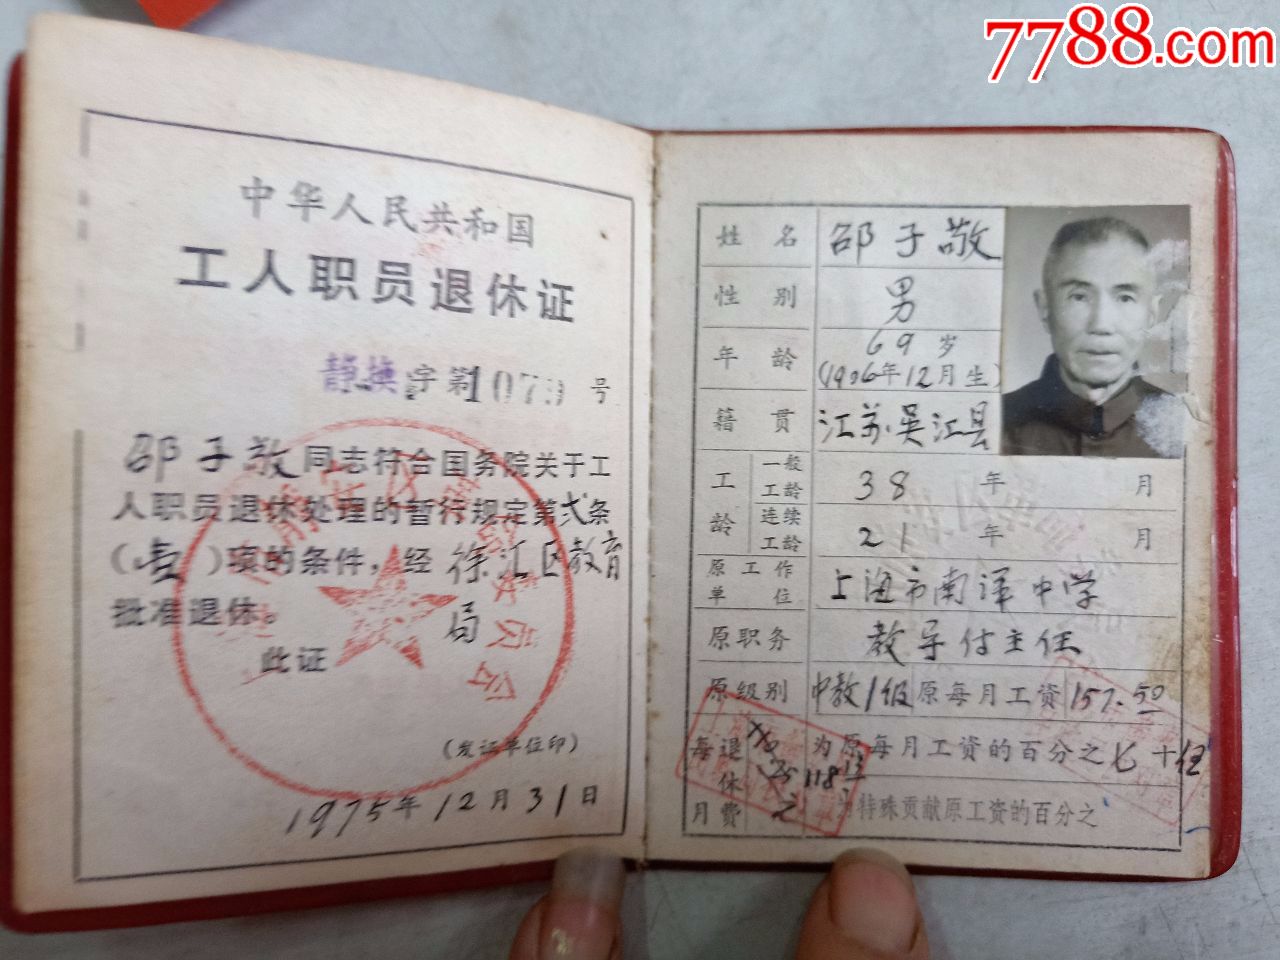 7788.com
中华人民共和国
工人职员退休证
静换字第1079号
邵子敬同志符合国务院关于工
人职员退休处理的暂行规定第弍条
(壹)项的条件，经徐汇区教育
局
批准退休。
此证
(发证单位印)
1975年12月31日
姓名 邵子敬
性别 男
年龄 69岁
(1906年12月生)
籍贯 江苏吴江县
工龄 一般工龄 38年 月
连续工龄 21年 月
原工作单位 上海市南洋中学
原职务 教导付主任
原级别 中教1级 原每月工资 157.50
每月退休费 118 13 为原每月工资的百分之七十伍
元 为特殊贡献原工资的百分之